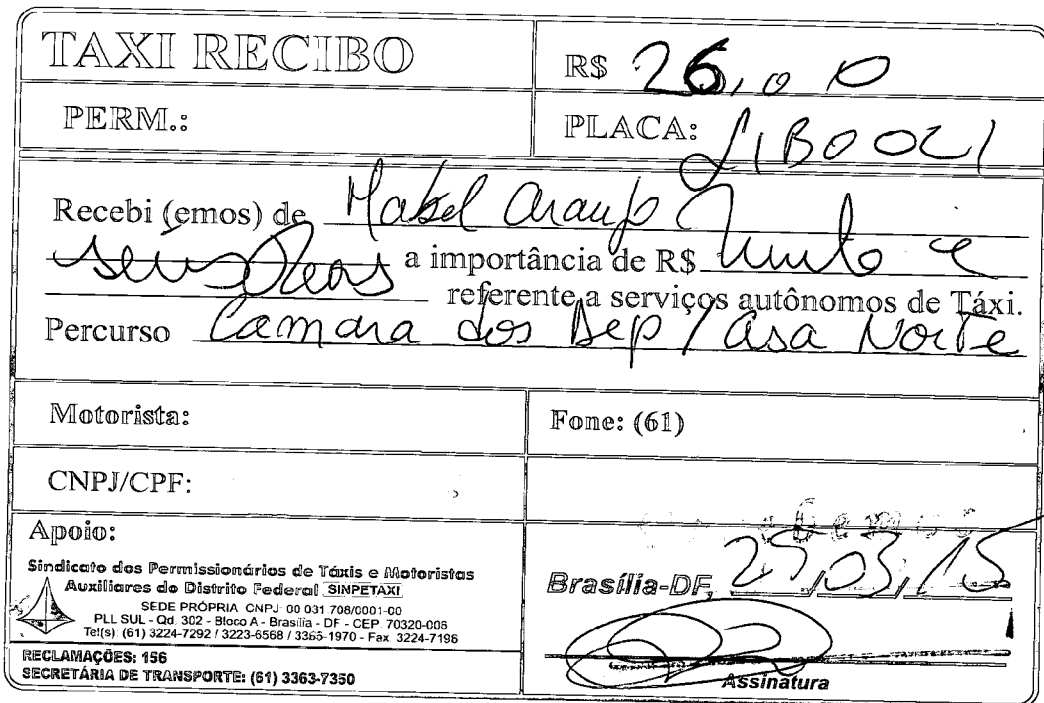 TAXI RECIBO
R$ 26,00
PERM.:
PLACA:
Recebi (emos) de Mabel Araujo
a importância de R$ e
seis reais referente a serviços autônomos de Táxi.
Percurso Camara dos Dep / Asa Norte
Motorista:
Fone: (61)
CNPJ/CPF:
Apoio:
Sindicato dos Permissionários de Táxis e Motoristas
Auxiliares do Distrito Federal SINPETAXI
SEDE PRÓPRIA CNPJ: 00 031 708/0001-00
PLL SUL - Qd. 302 - Bloco A - Brasília - DF - CEP. 70320-006
Tel(s) (61) 3224-7292 / 3223-6568 / 3365-1970 - Fax 3224-7196
RECLAMAÇÕES: 156
SECRETÁRIA DE TRANSPORTE: (61) 3363-7350
Brasília-DF, /03/15
Assinatura